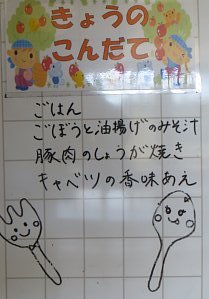 きょうの
こんだて
ごはん
ごぼうと油揚げのみそ汁
豚肉のしょうが焼き
キャベツの香味あえ